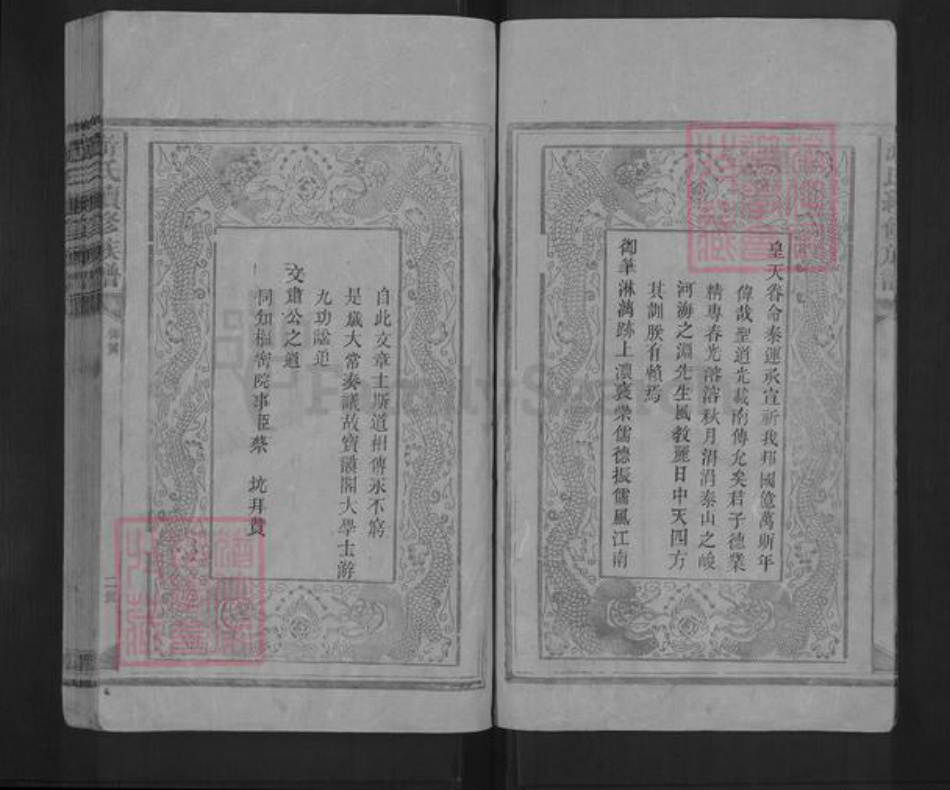 皇天眷命泰運承宣祈我邦國億萬斯年
偉哉聖道光載南傳允矣君子德業
精專春光溶溶秋月涓涓泰山之峻
河海之淵先生風教麗日中天四方
其訓朕有賴焉
御筆淋漓跡上濃褒榮儒德振儒風江南
自此文章士斯道相傳永不窮
是歲大常奏議故寶謨閣大學士
九功諡追
文肅公之道
同知樞密院事臣蔡 抗拜贊
氏續修族譜